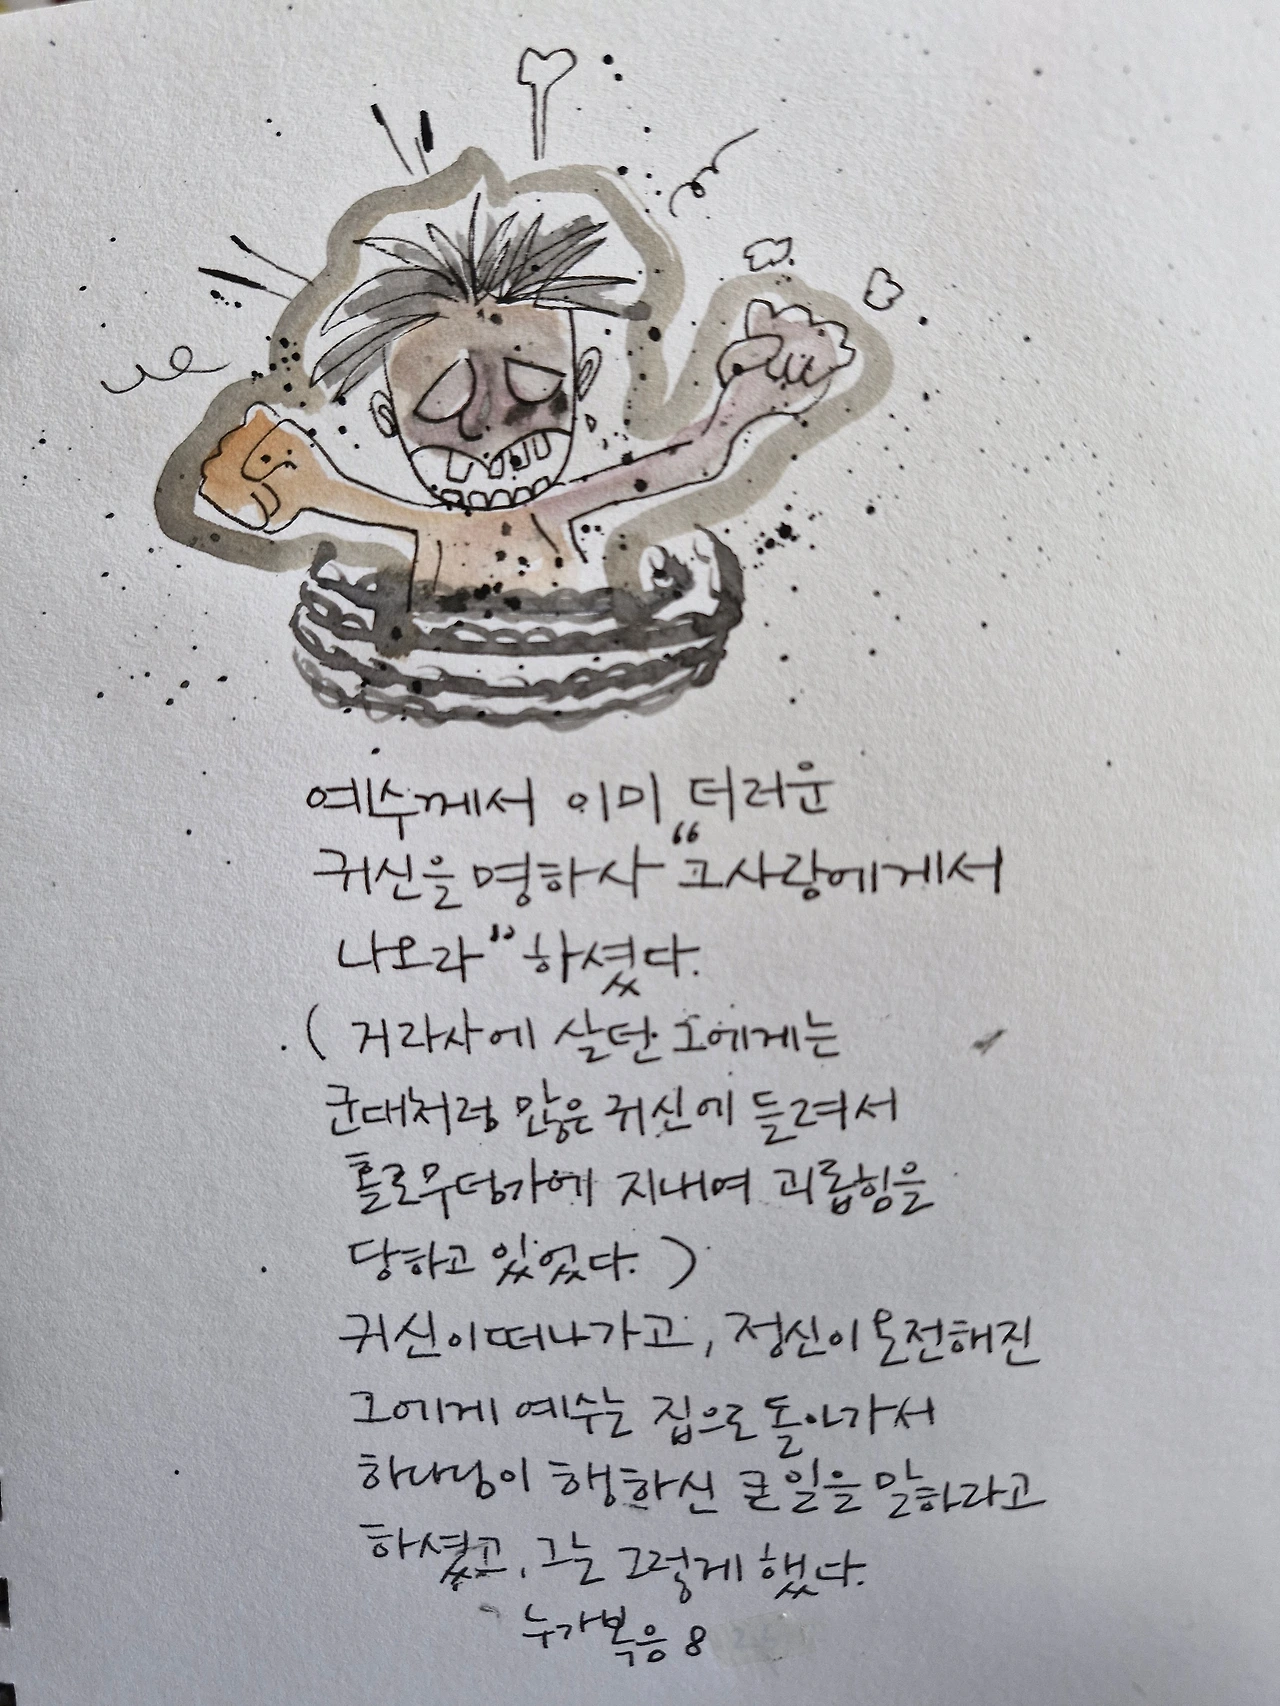 예수께서 이미 더러운
귀신을 명하사 "그사람에게서
나오라" 하셨다.
( 거라사에 살던 그에게는
군대처럼 많은 귀신에 들려서
홀로무덤가에 지내여 괴롭힘을
당하고 있었다. )
귀신이떠나가고, 정신이온전해진
그에게 예수는 집으로 돌아가서
하나님이 행하신 큰일을 말하라고
하셨고, 그는 그렇게 했다.
누가복음 8